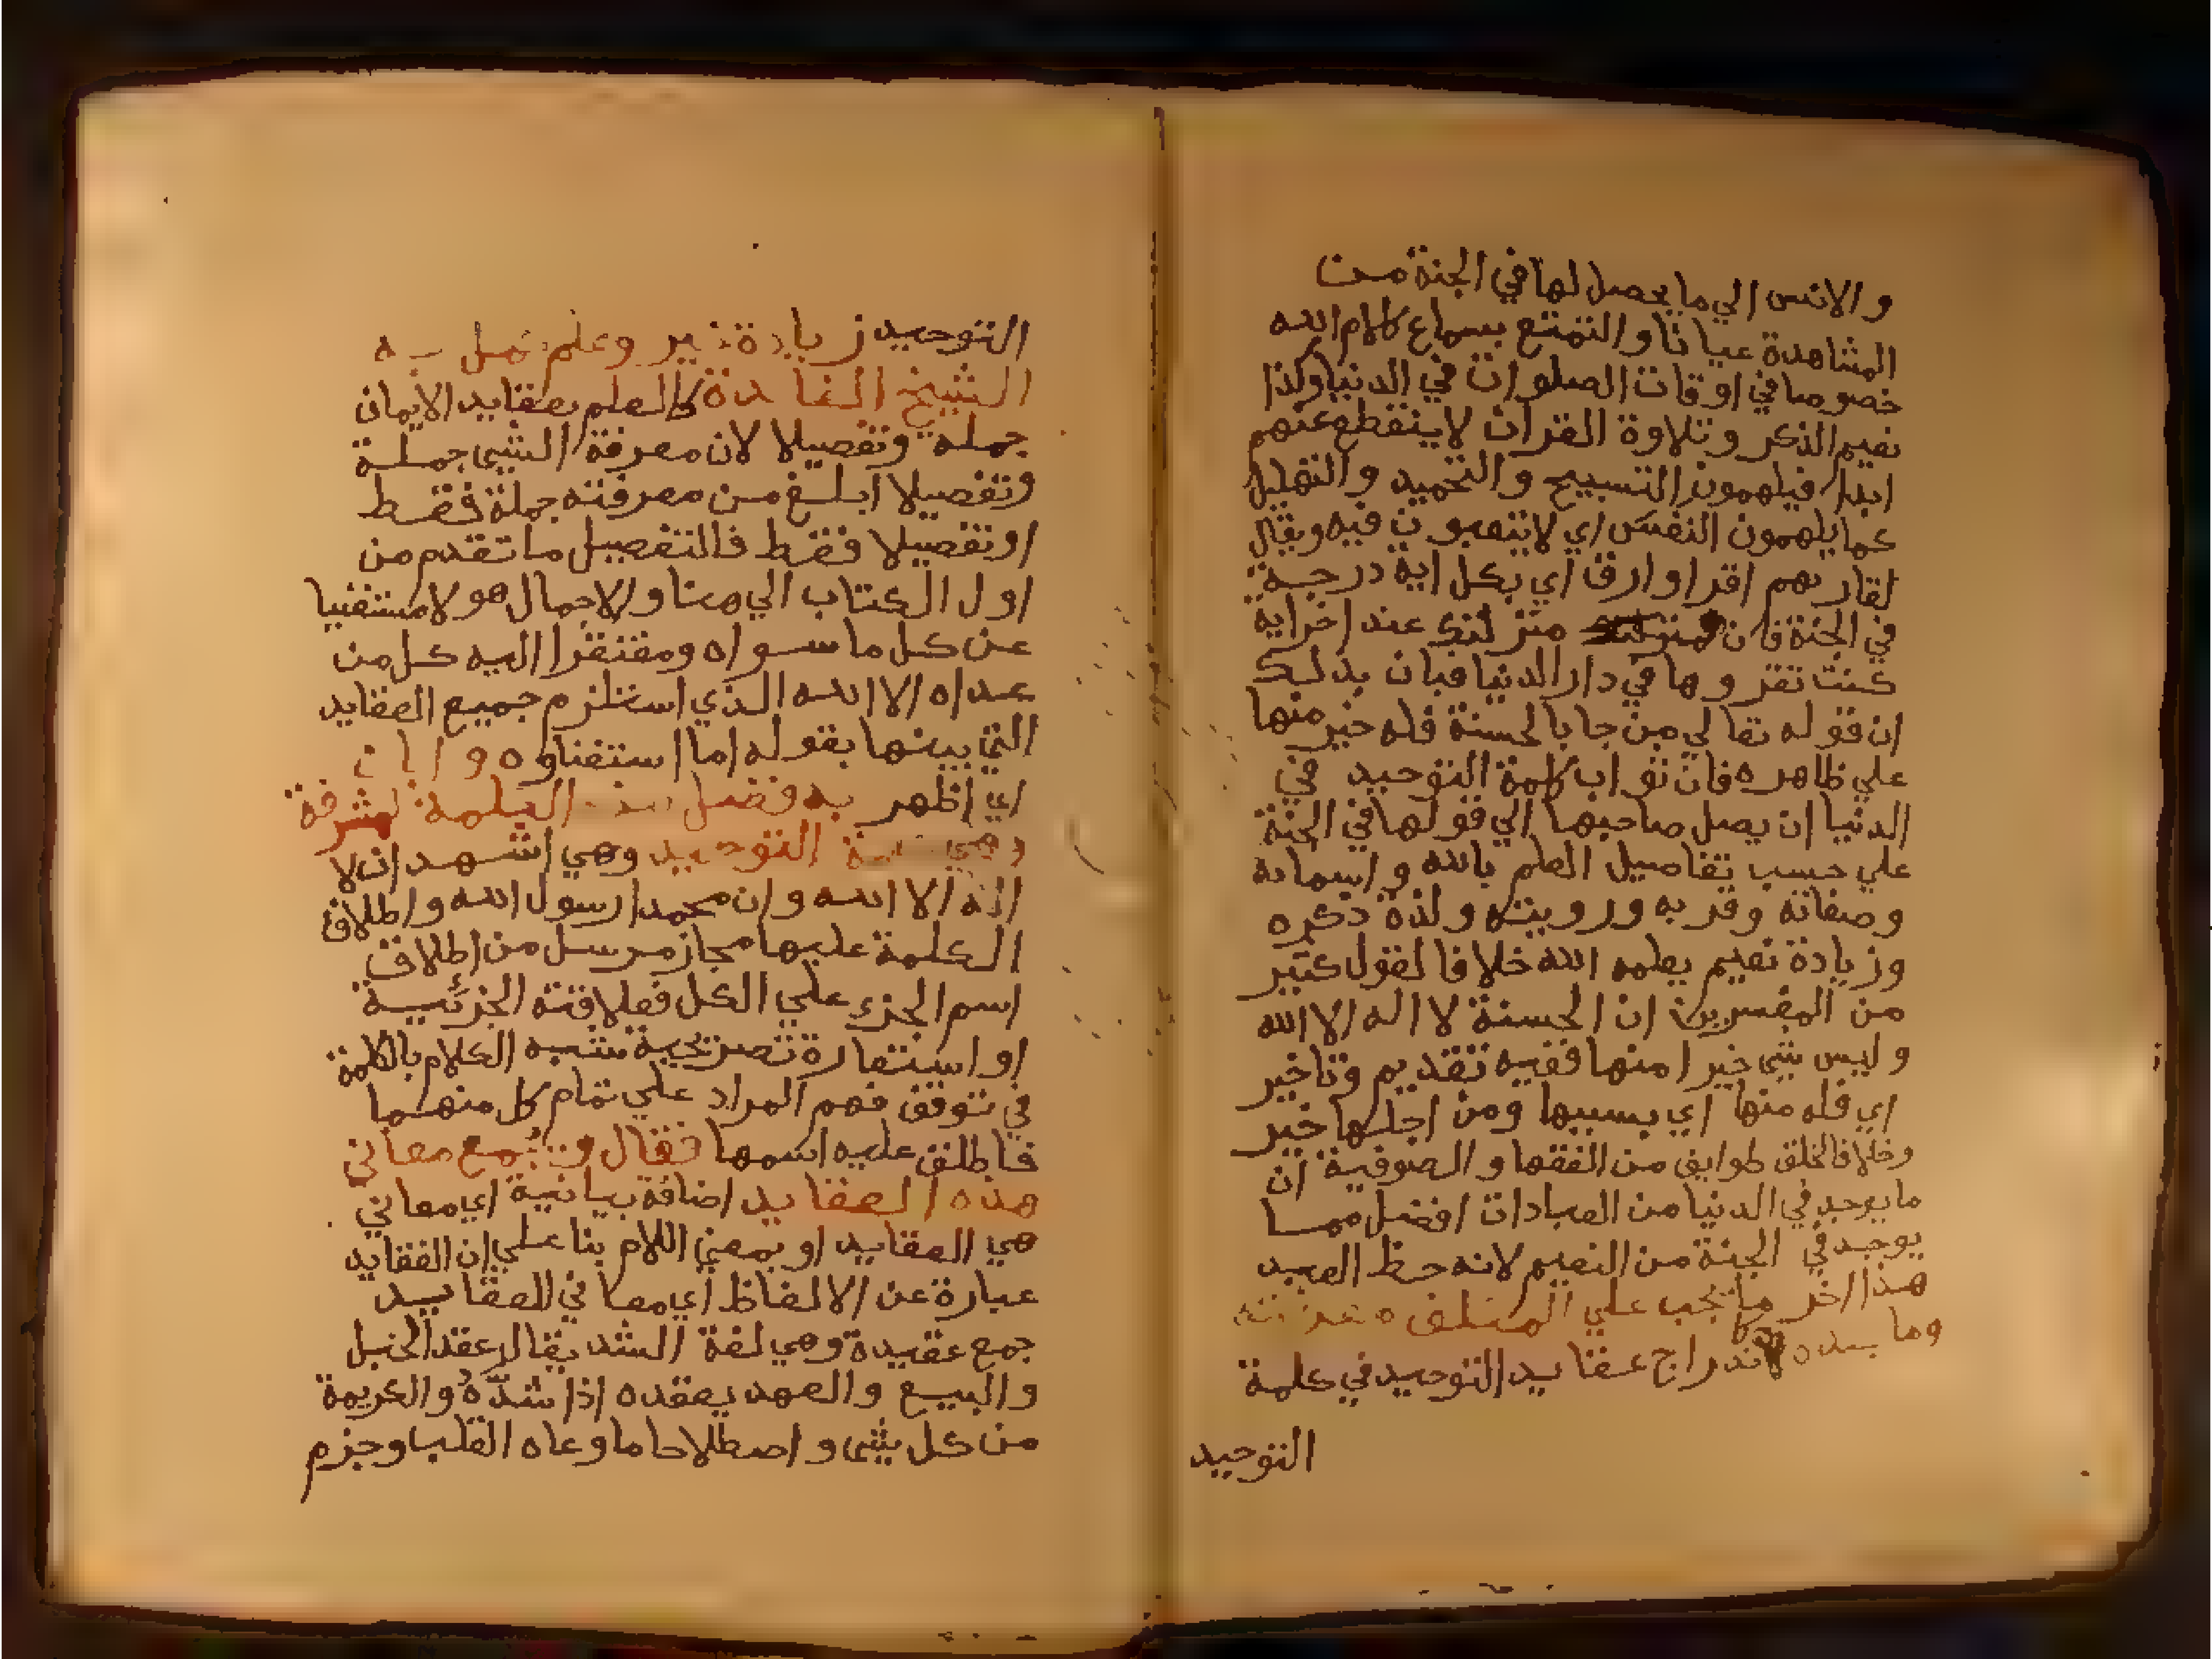 والانس الي ما يحصل لها في الجنة من
المشاهدة عيانا والتمتع بسماع كلام الله
خصوصا في اوقات الصلوات في الدنيا وكذا
نعيم الذكر وتلاوة القران لا ينقطع عنهم
ابدا فيلهمون التسبيح والتحميد والتهليل
كما يلهمون النفس اي لا يتعبون فيه ويقال
لقاريهم اقرا وارق اي بكل اية درجة
في الجنة فان منزلتك عند اخر اية
كنت تقروها في دار الدنيا فبان بذلك
ان قوله تعالي من جا بالحسنة فله خير منها
علي ظاهره فان ثواب كلمة التوحيد في
الدنيا ان يصل صاحبها الي قولها في الجنة
علي حسب تفاصيل العلم بالله واسمائه
وصفاته وقربه ورويته ولذة ذكره
وزيادة نعيم يعلمه الله خلافا لقول كثير
من المفسرين ان الحسنة لا اله الا الله
وليس شي خيرا منها ففيه تقديم وتاخير
اي فله منها اي بسببها ومن اجلها خير
وخلافا لخلق طوايف من الفقها والصوفية ان
ما يوجد في الدنيا من العبادات افضل مما
يوجد في الجنة من النعيم لانه حظ العبد
هذا اخر ما يجب علي المكلف معرفته
وما بعده لاندراج عقايد التوحيد في كلمة
التوحيد
التوحيد زيادة خير وعلم
الشيخ الفائدة كالعلم بعقايد الايمان
جملة وتفصيلا لان معرفة الشي جملة
وتفصيلا ابلغ من معرفته جملة فقط
او تفصيلا فقط فالتفصيل ما تقدم من
اول الكتاب الي هنا والاجمال هو لا مستغنيا
عن كل ما سواه ومفتقرا اليه كل من
عداه الا الله الذي استلزم جميع العقايد
التي بينها بقوله اما استغناوه وابان
اي اظهر به فضل الكلمة المشرفة
وهي التوحيد وهي اشهد ان لا
اله الا الله وان محمدا رسول الله واطلاق
الكلمة عليها مجاز مرسل من اطلاق
اسم الجزء علي الكل فعلاقته الجزئية
او استعارة تصريحية شبه الكلام بالكلمة
في توقف فهم المراد علي تمام كل منهما
فاطلق عليه اسمها فقال ويجمع معاني
هذه العقايد اضافة بيانية اي معاني
هي العقايد او بمعني اللام بنا علي ان العقايد
عبارة عن الالفاظ اي معا في العقايد
جمع عقيدة وهي لغة الشد يقال عقد الحبل
والبيع والعهد يعقده اذا شدّهُ والكريمة
من كل شي واصطلاحا ما وعاه القلب وجزم